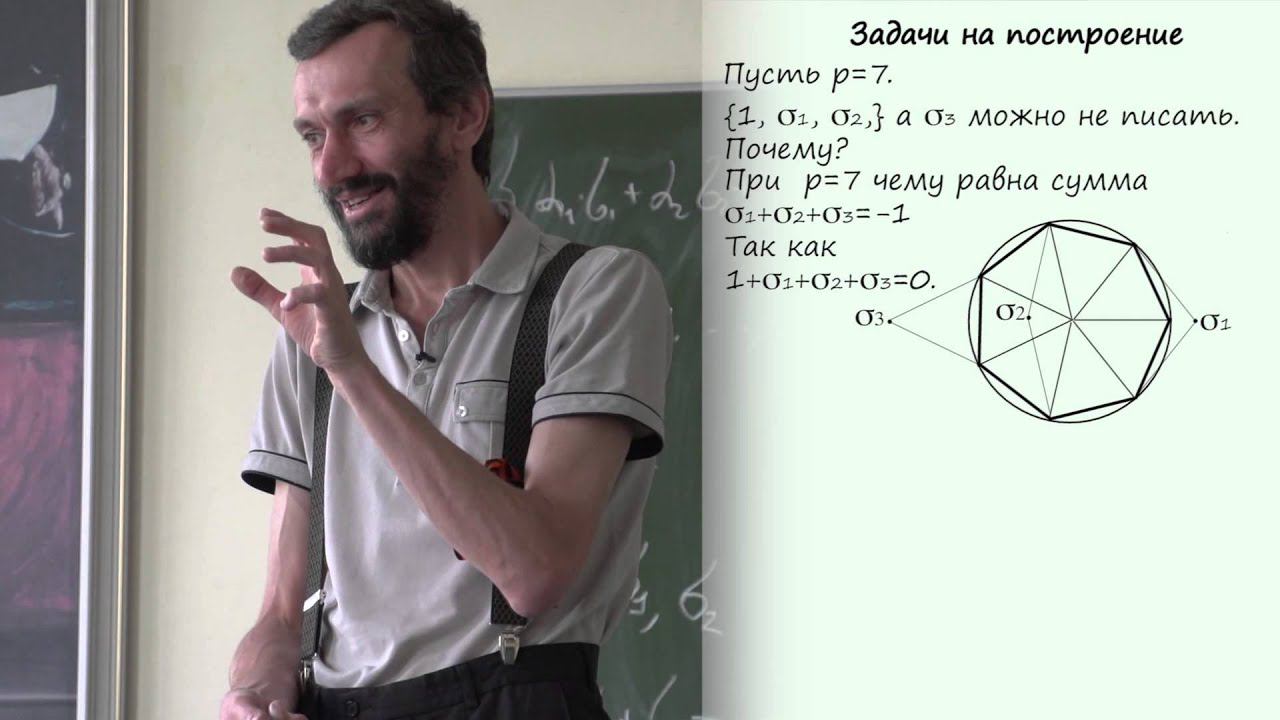 Задачи на построение
Пусть p=7.
{1, σ1, σ2,} а σ3 можно не писать.
Почему?
При p=7 чему равна сумма
σ1+σ2+σ3=-1
Так как
1+σ1+σ2+σ3=0.
σ3
σ2
σ1